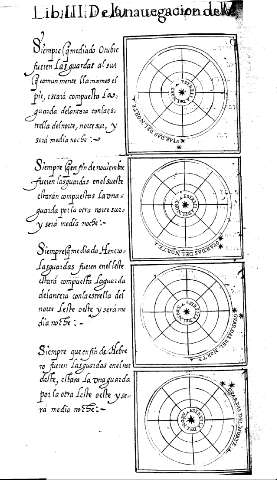 Lib. III. De la nauegacion del N
Siempre q̃ mediado Otubre
fueren las guardas al sur
q̃ comunmente llamamos el
pie, estara compuesta la g̃
guarda delantera con la es
trella del norte, norte sur, y
sera media noche:~
Siempre q̃ en fin de nouiembre
fueren las guardas en el sueste
estaran compuestas la vna
guarda por la otra norte sur
y sera media noche:~
Siempre q̃ mediado Henero
las guardas fueren en el leste
estara compuesta la guarda
delantera con la estrella del
norte leste oeste y sera me
dia noche:~
Siempre que en fin de Hebre
ro fueren las guardas en el nor
deste, estara la vna guarda
por la otra leste oeste y se
ra media noche:~
GUARDAS DEL NORTE
GUARDAS DEL NORTE
GUARDAS DEL NORTE
GUARDAS DEL NORTE